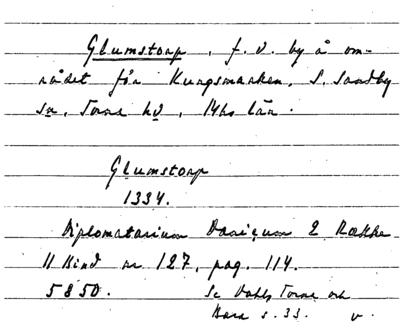 Glumstorp, f.d. by å om-
rådet för Kungsmarken, S. Sandby
sn, Torna hd, Mhs län.
Glumstorp
1334.
Diplomatarium Danicum 2 Række
11 Bind nr 127, pag. 114.
5850. Se Dahls Torna och
Bara s. 33. v.